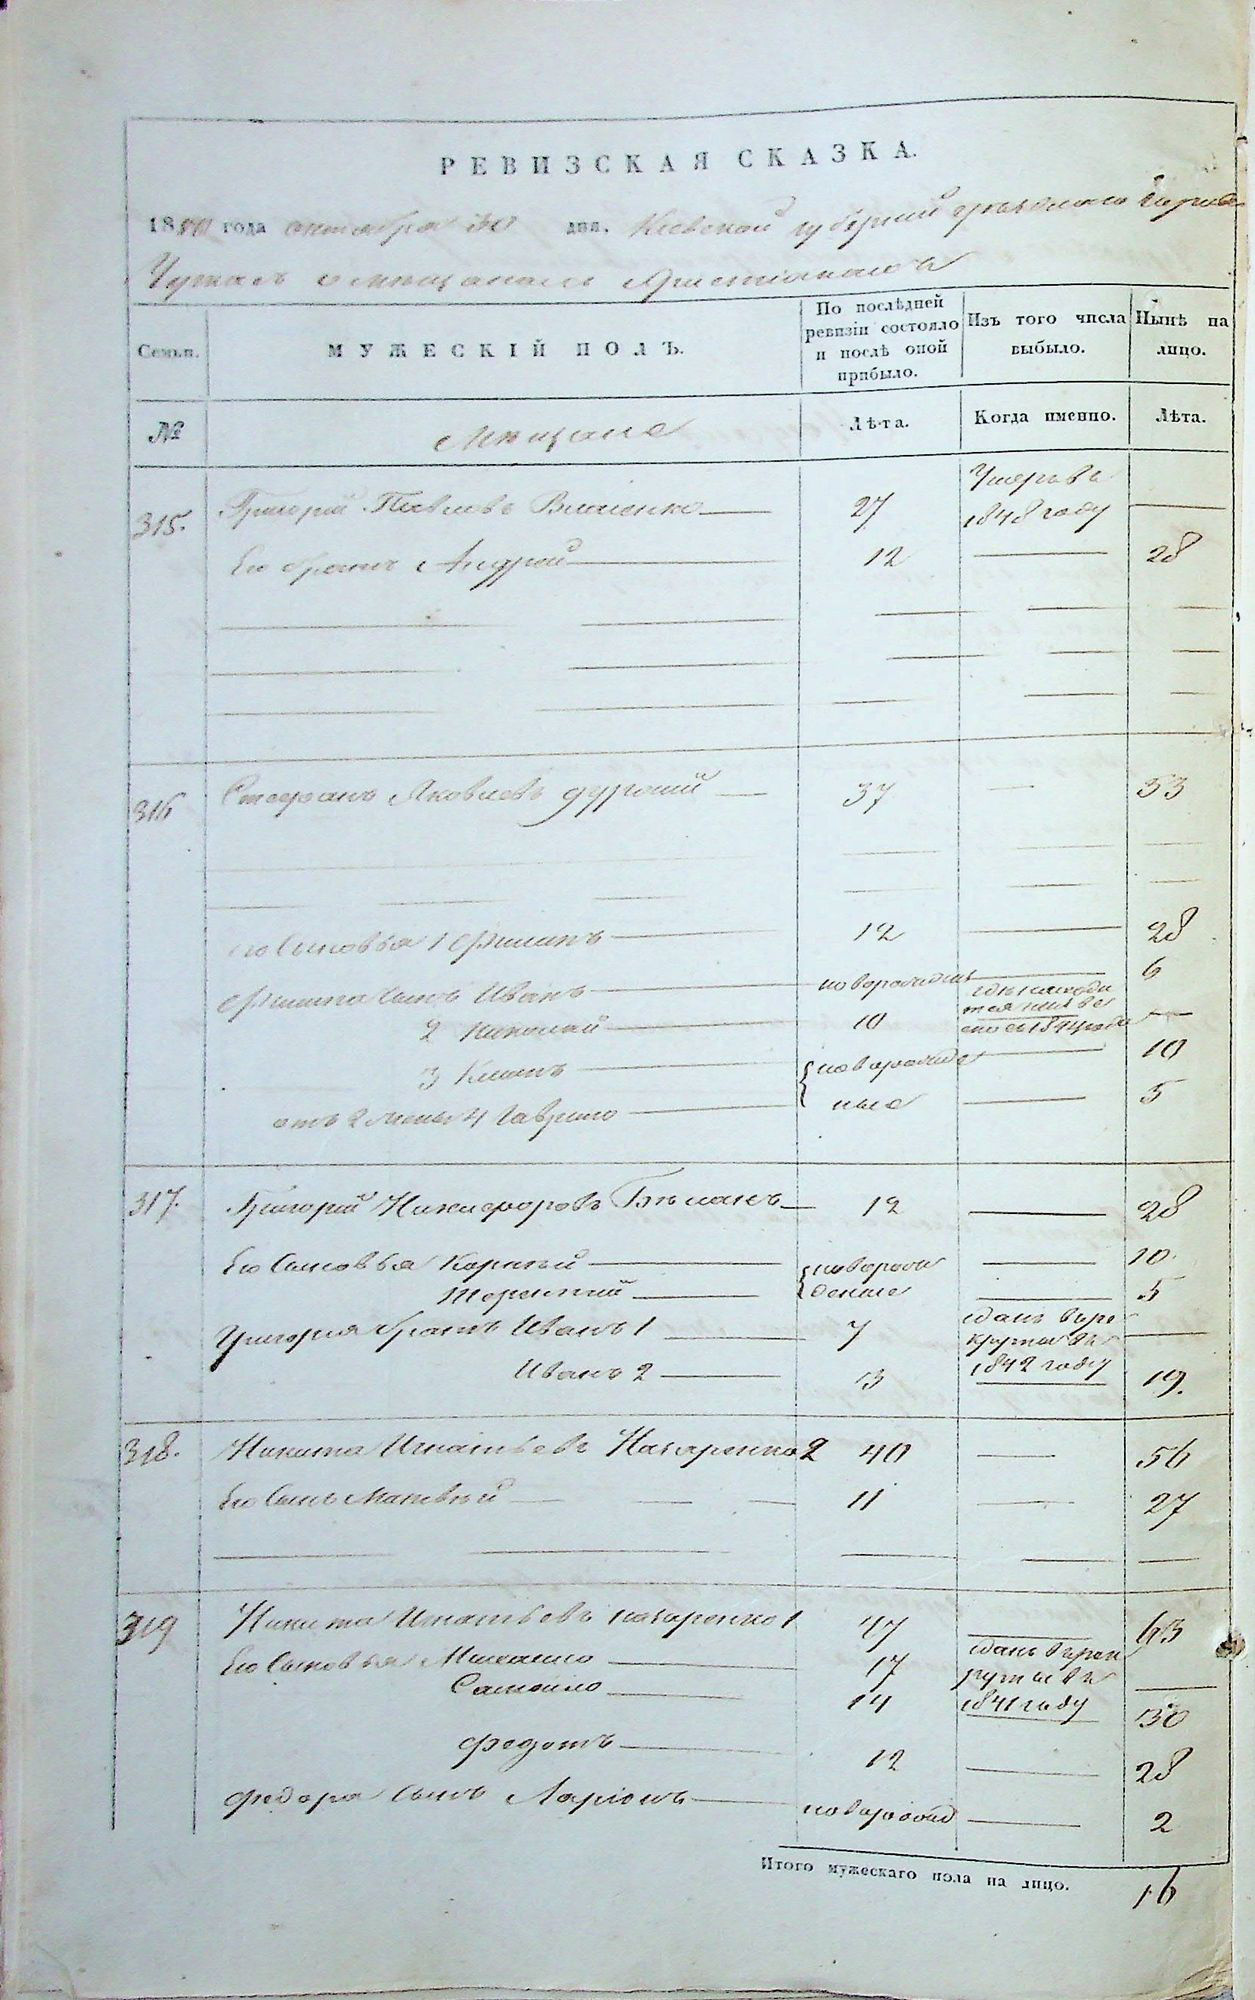 РЕВИЗСКАЯ СКАЗКА.
1850 года октября 30 дня. Киевской губернии уезднаго города
о мещанахъ христианахъ
Семьи. МУЖЕСКІЙ ПОЛЪ. По послѣдней ревизіи состояло и послѣ оной прибыло. Изъ того числа выбыло. Нынѣ на лицо.
№ Мещане Лѣта. Когда именно. Лѣта.
315. Григорій Павловъ Власенко 27 Умеръ въ 1848 году
Его братъ Андрей 12 28
316 Стефанъ Яковлевъ 37 53
его Сыновья 1 Филипъ 12 28
Филипа сынъ Иванъ новорожденъ 6
2 Николай 10
3 Климъ новорожде 10
отъ 2 жены 4 Гаврило ные 5
317. Григорій Никифоровъ Бѣланъ 12 28
Его Сыновья Корній новорож 10
Терентій денные 5
Григорія братъ Иванъ 1 7 сданъ въ ре
круты въ
Иванъ 2 13 1842 году 19.
318. Никита Игнатьевъ Назаренко 2 40 56
Его Сынъ Матвѣй 11 27
319 Никита Игнатьевъ назаренко 1 47 63
Его Сыновья Михайло 17 сданъ въ рек
руты въ
Самойло 14 1841 году 30
Федотъ 12 28
Федора сынъ Ларіонъ новорожд 2
Итого мужескаго пола на лицо. 16